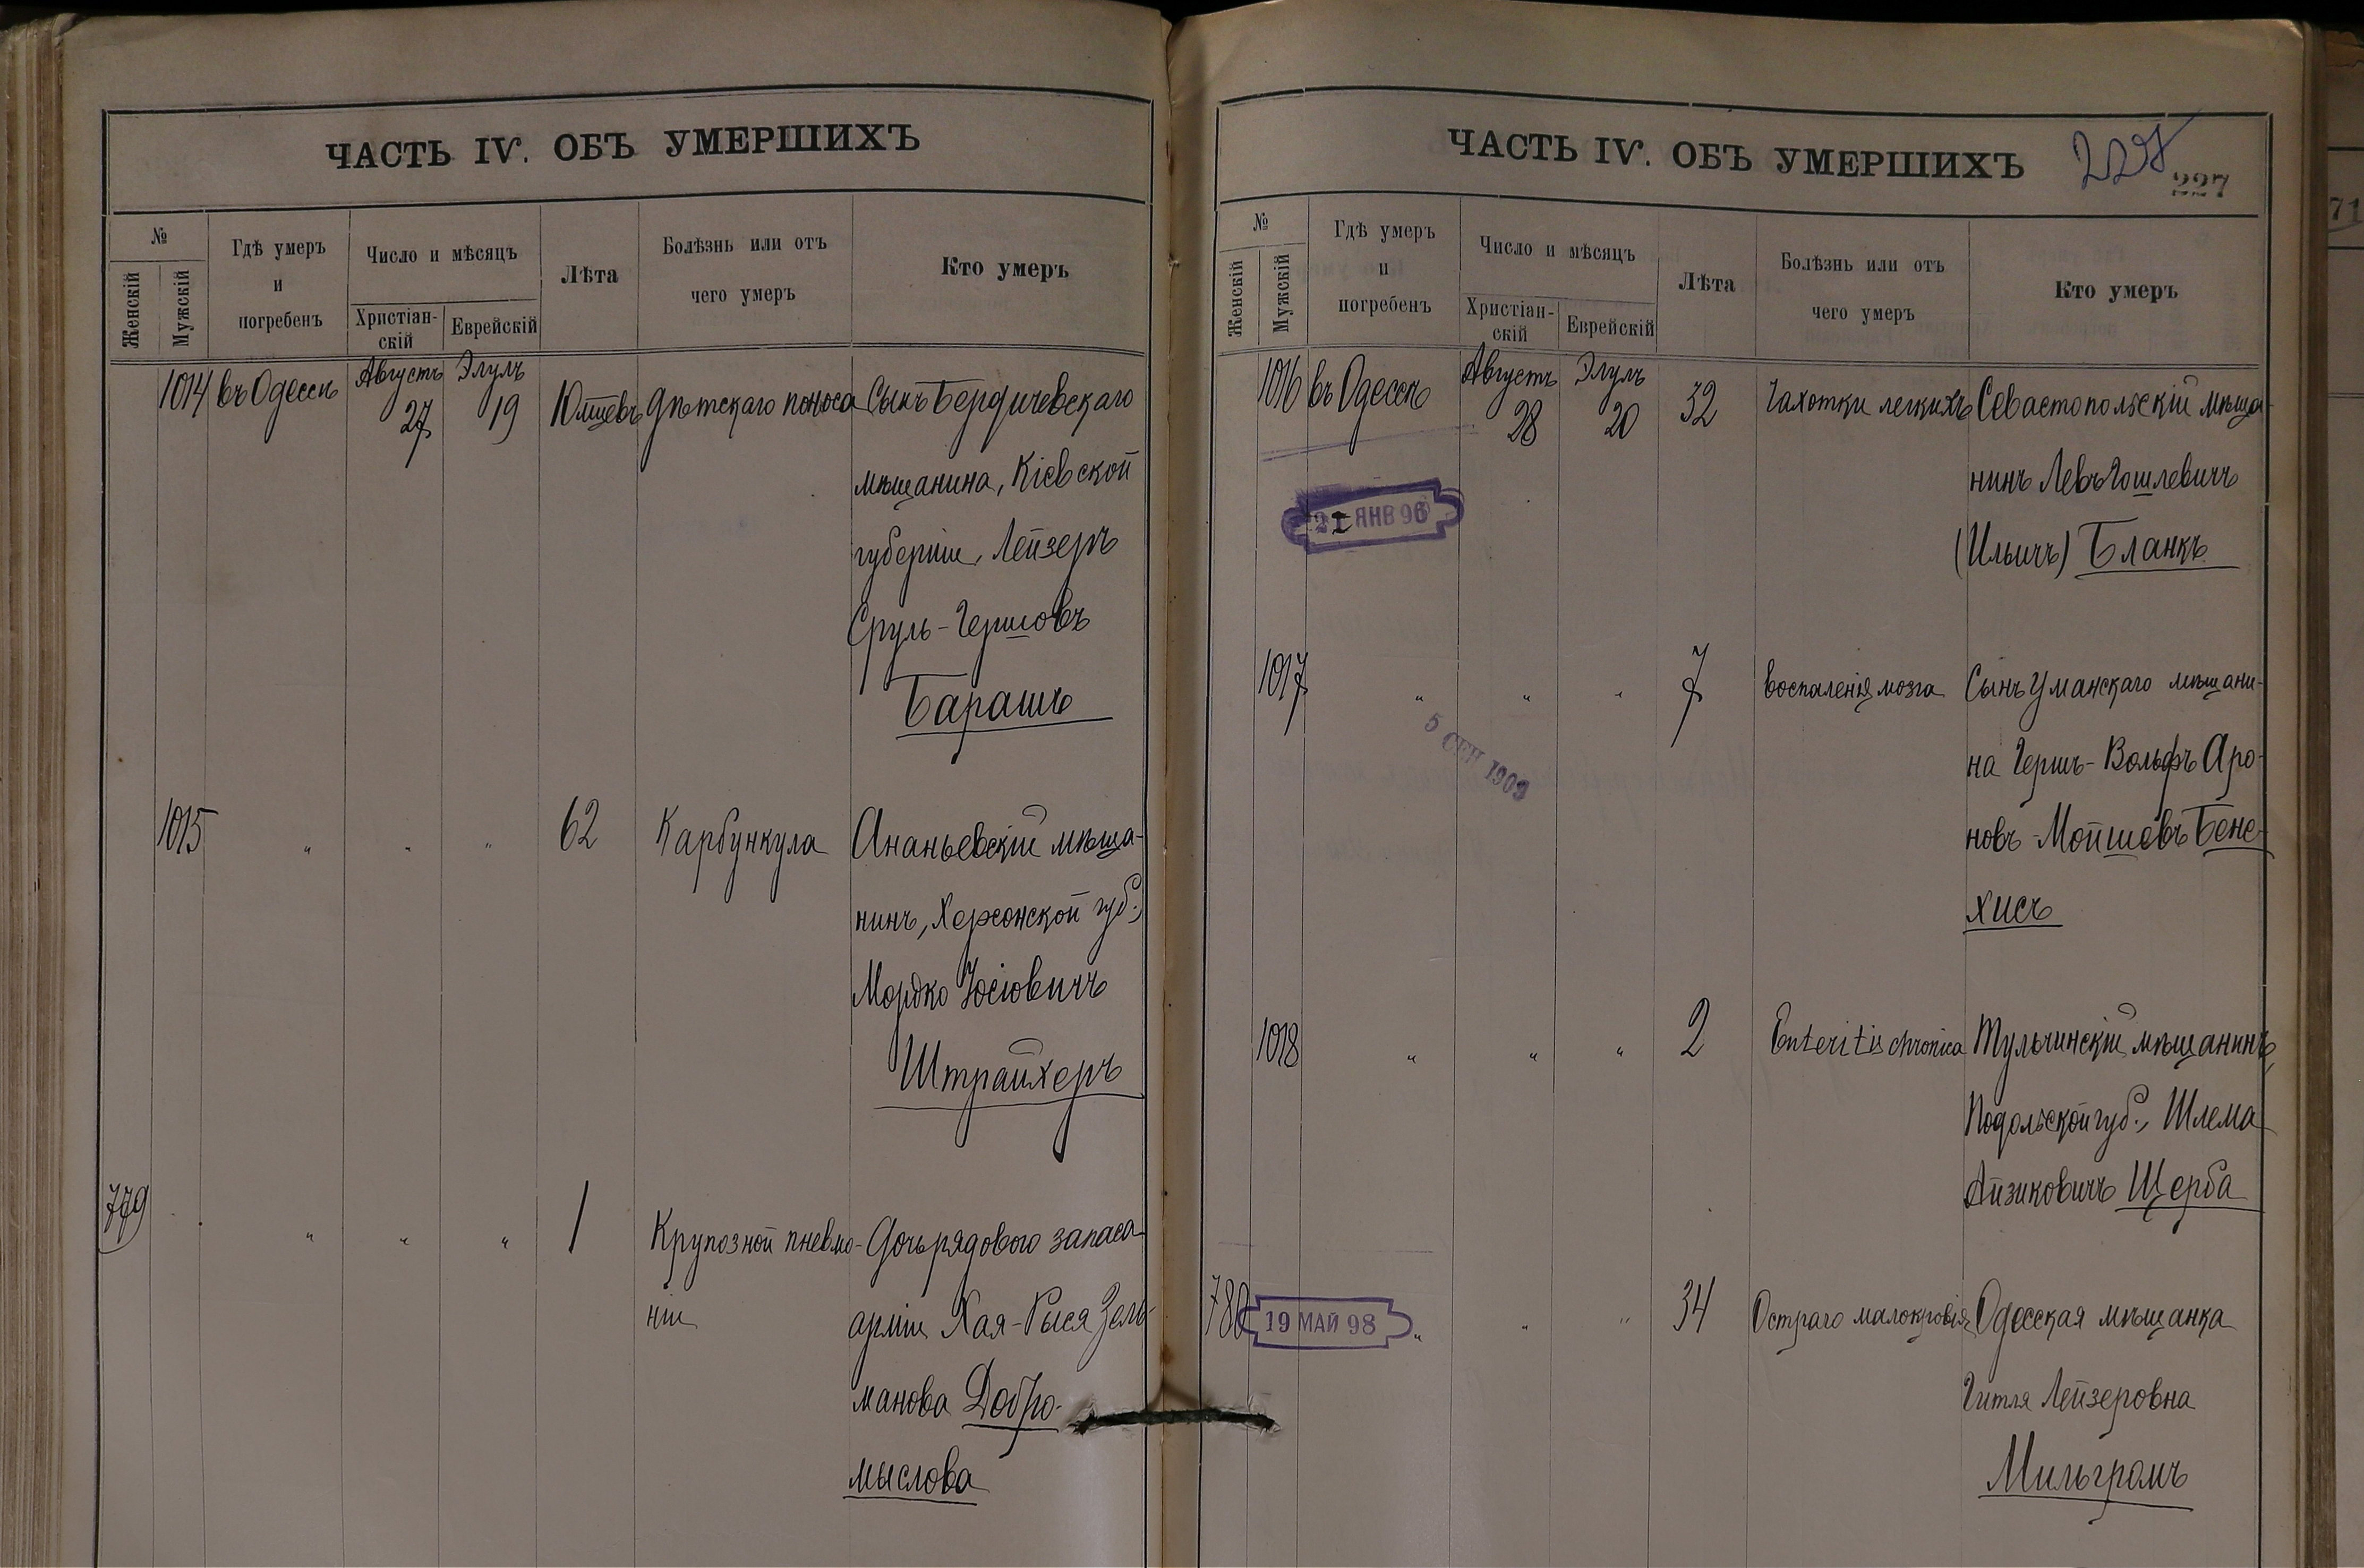 ЧАСТЬ IV. ОБЪ УМЕРШИХЪ
№
Женскій
Мужскій
Гдѣ умеръ
и
погребенъ
Число и мѣсяцъ
Христіан-
скій
Еврейскій
Лѣта
Болѣзнь или отъ
чего умеръ
Кто умеръ
1014 въ Одессѣ Августъ 27 Элулъ 19 10 мѣсцевъ дѣтскаго поноса Сынъ Бердичевскаго
мѣщанина, Кіевской
губерніи, Лейзеръ
Сруль-Гершовъ
Барашъ
1015 " " " 62 Карбункула Ананьевскій мѣща-
нинъ, Херсонской губ.,
Мордко Іосіовичъ
Штрайхеръ
779 " " " 1 Крупозной пневмо- Дочь рядового запаса
ніи арміи Хая-Рыся Зель-
манова Добро-
мыслова
ЧАСТЬ IV. ОБЪ УМЕРШИХЪ
227
227
№
Женскій
Мужскій
Гдѣ умеръ
и
погребенъ
Число и мѣсяцъ
Христіан-
скій
Еврейскій
Лѣта
Болѣзнь или отъ
чего умеръ
Кто умеръ
1016 въ Одессѣ Августъ 28 Элулъ 20 32 Чахотки легкихъ Севастопольскій мѣща-
нинъ Левъ Іошлевичъ
ЯНВ 96
(Ильичъ) Бланкъ
1017 " " " 7 воспаленія мозга Сынъ Уманскаго мѣщани-
5 СЕН 1909
на Гершъ-Вольфъ Аро-
новъ-Мойшевъ Бене-
хисъ
1018 " " " 2 Enteritis chronica Тульчинскій мѣщанинъ,
Подольской губ., Шлема
Айзиковичъ Щерба
780 19 МАЙ 98 " " " 34 Остраго малокровія Одесская мѣщанка
Гитля Лейзеровна
Мильгромъ
71